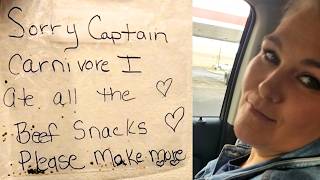 Sorry Captain
Carnivore I
Ate all the
Beef Snacks
Please Make more